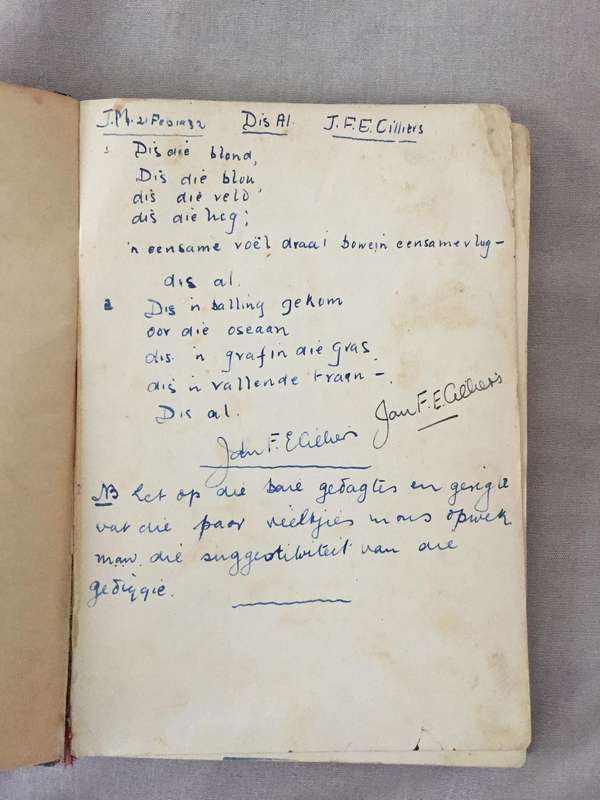 J.M. 21 Feb 1932 Dis Al. J.F.E. Cilliers
1 Dis die blond,
Dis die blou
dis die veld,
dis die lug;
'n eensame voël draai bowe in eensame vlug –
dis al.
2 Dis 'n balling gekom
oor die oseaan
dis 'n graf in die gras
dis 'n vallende traan –
Dis al.
Jan F. E. Cilliers
Jan F. E. Cilliers
NB Let op die baie gedagtes en gesigte
wat die paar reëltjies in ons opwek
m.a.w. die suggestiwiteit van die
gediggie.